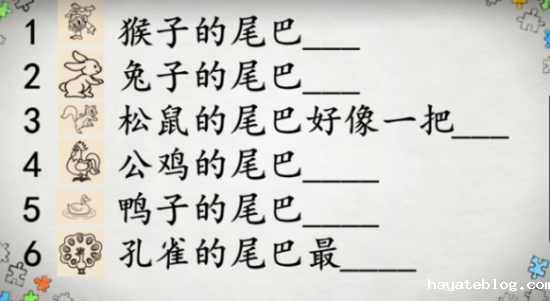 1 猴子的尾巴___
2 兔子的尾巴___
3 松鼠的尾巴好像一把___
4 公鸡的尾巴____
5 鸭子的尾巴____
6 孔雀的尾巴最____
hayateblog.com